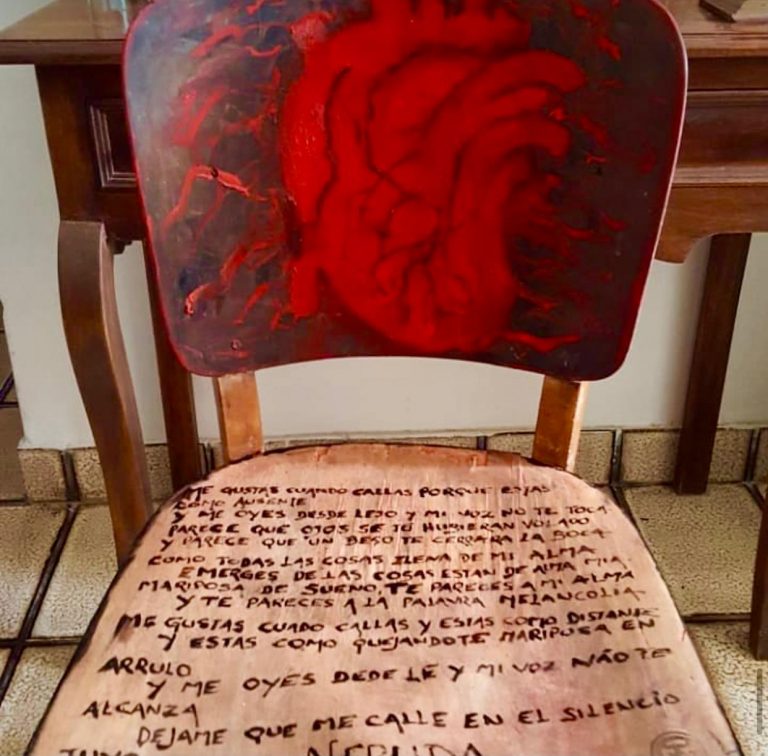 ME GUSTAS CUANDO CALLAS PORQUE ESTAS
COMO AUSENTE
Y ME OYES DESDE LEJO Y MI VOZ NO TE TOCA
PARECE QUE OJOS SE TU HUBIERAN VOLADO
Y PARECE QUE UN BESO TE CERRARA LA BOCA
COMO TODAS LAS COSAS LLENA DE MI ALMA
EMERGES DE LAS COSAS ESTAN DE ALMA MIA
MARIPOSA DE SUEÑO, TE PARECES A MI ALMA
Y TE PARECES A LA PALAVRA MELANCOLIA
ME GUSTAS CUADO CALLAS Y ESTAS COMO DISTANTE
Y ESTAS COMO QUEJANDOTE MARIPOSA EN
ARRULO
Y ME OYES DEDE LÉ Y MI VOZ NÃO TE
ALCANZA
DEJAME QUE ME CALLE EN EL SILENCIO
NERUDA